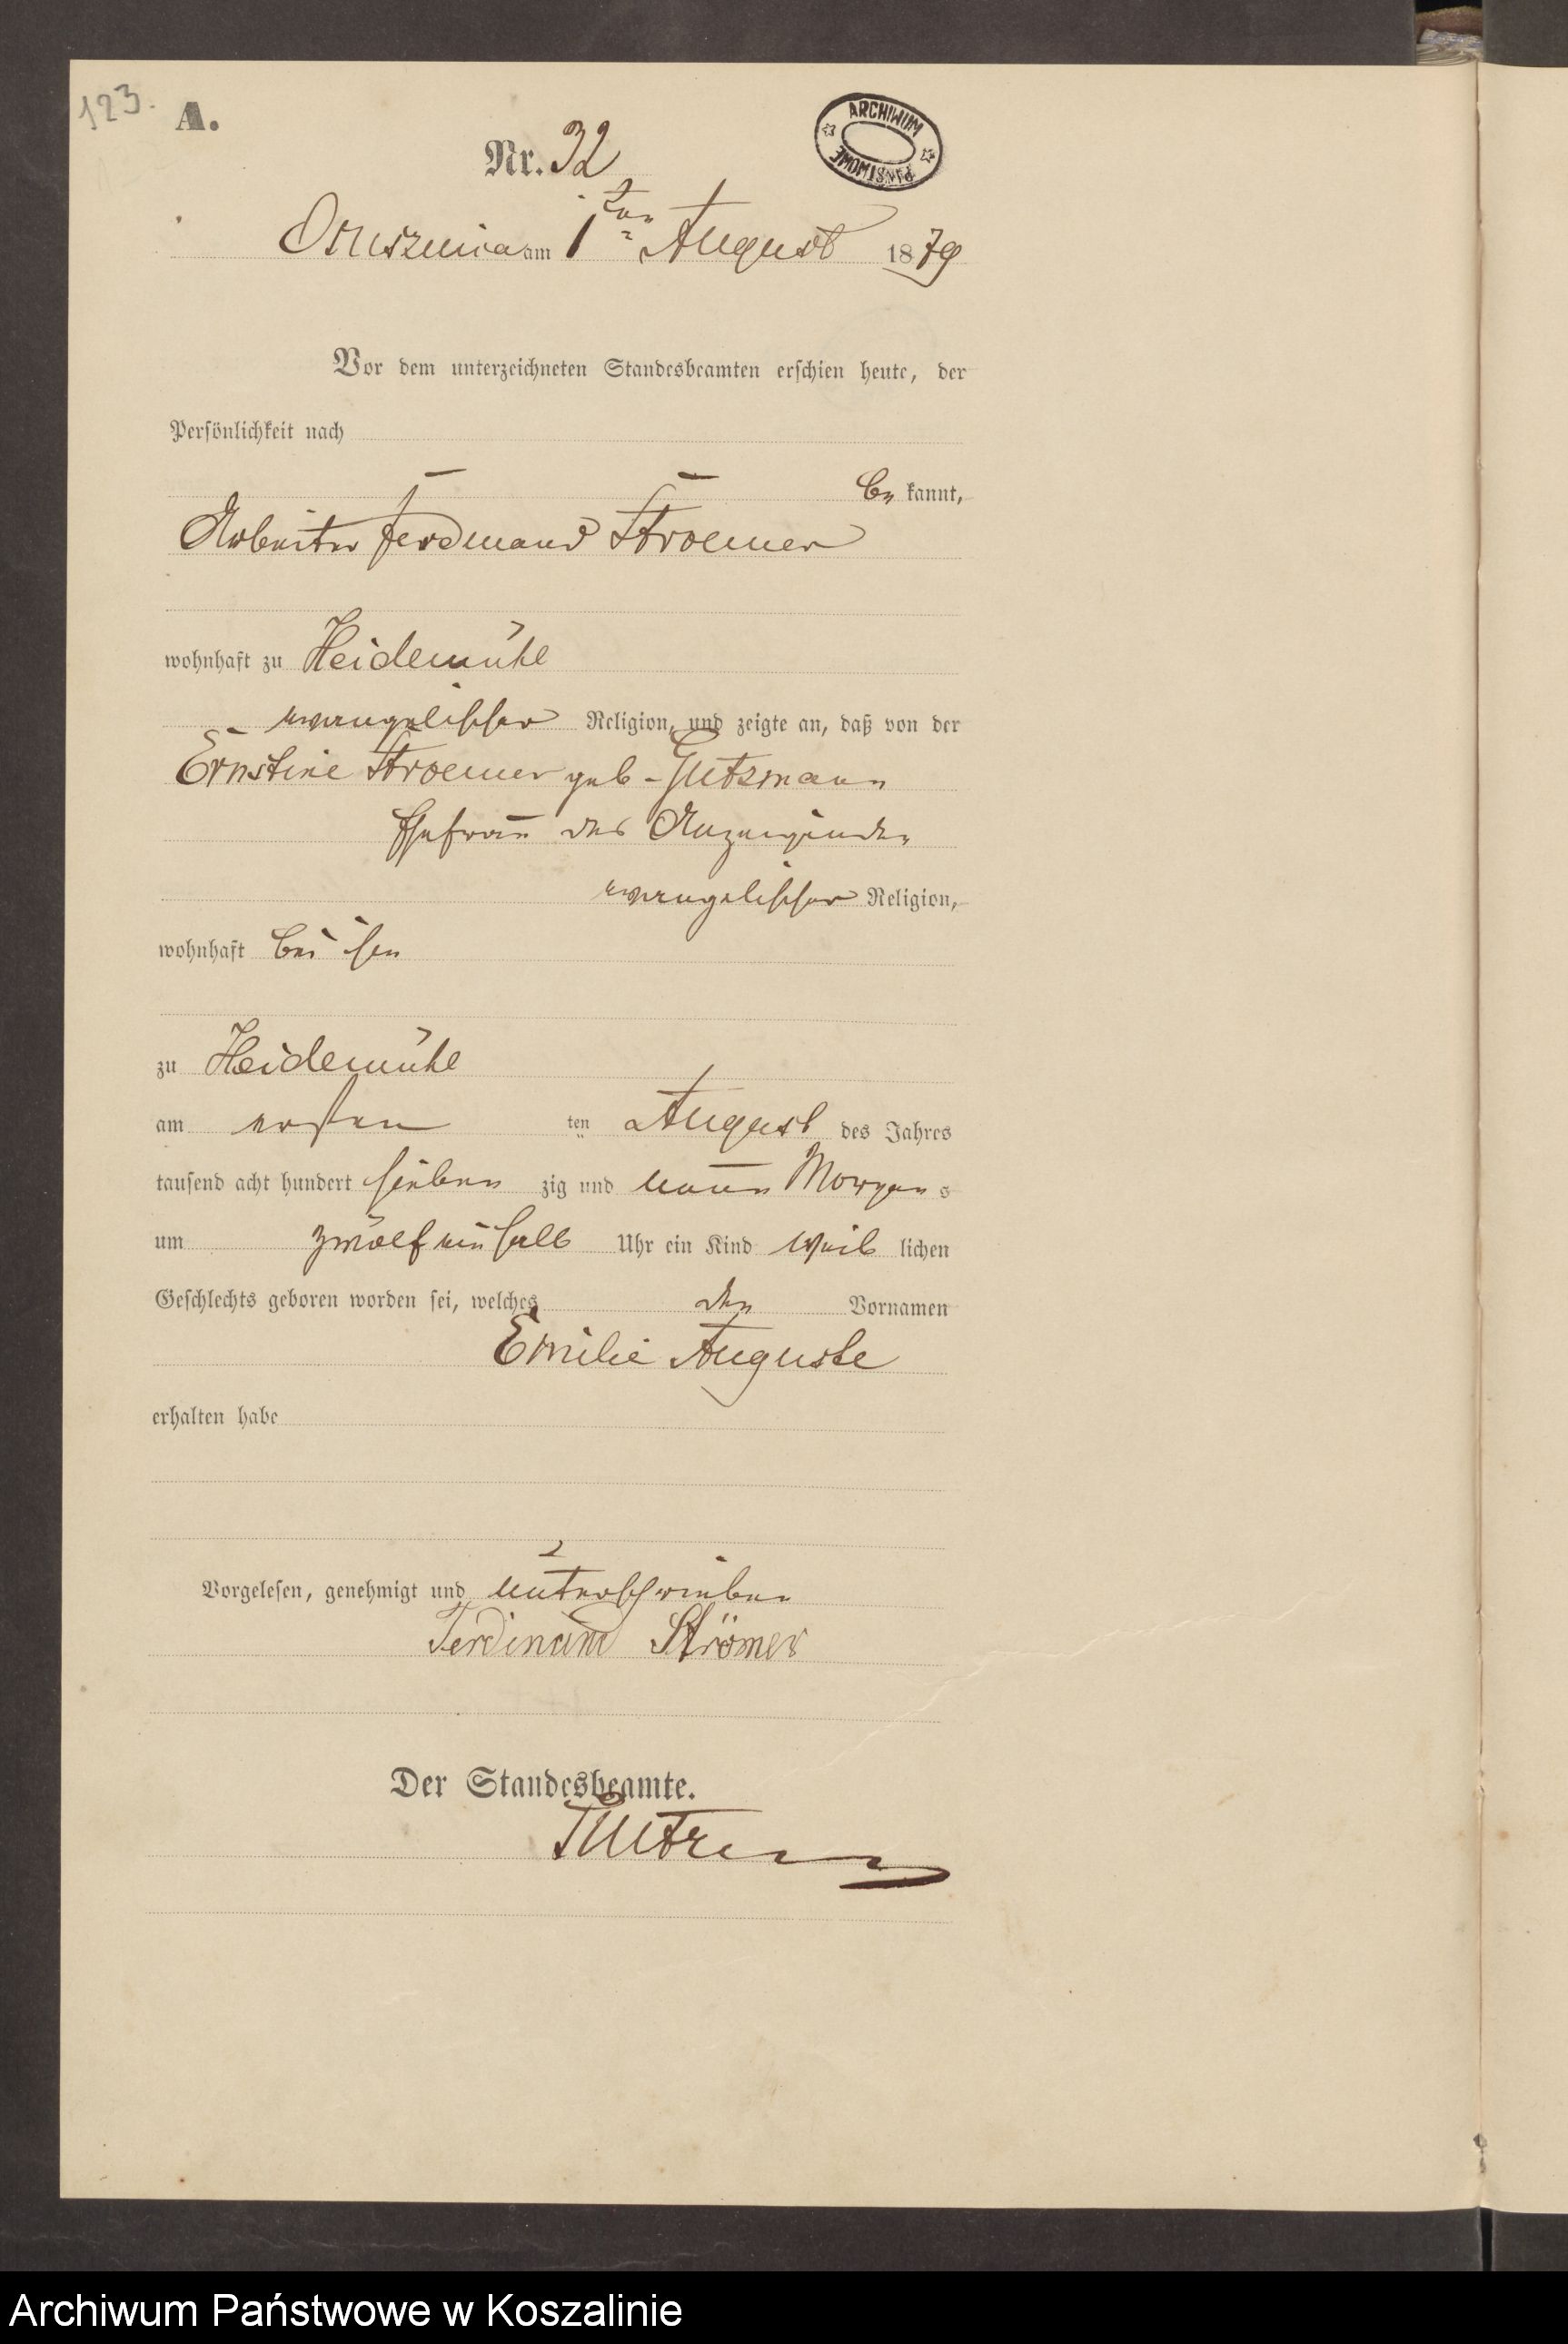 123.
A.
ARCHIWUM
PAŃSTWOWE
Nr. 32
am 1ten August 1879
Vor dem unterzeichneten Standesbeamten erschien heute, der
Persönlichkeit nach
be kannt,
Arbeiter Ferdinand Stroemer
wohnhaft zu Heidemühl
evangelischer Religion, und zeigte an, daß von der
Ernstine Stroemer geb. Gutzmann
Ehefrau des Anzeigenden
evangelischer Religion,
wohnhaft bei ihm
zu Heidemühl
am ersten ten August des Jahres
tausend acht hundert sieben zig und neun Morgens
um zwölf ein halb Uhr ein Kind weib lichen
Geschlechts geboren worden sei, welches den Vornamen
Emilie Auguste
erhalten habe
Vorgelesen, genehmigt und unterschrieben
Ferdinand Strömer
Der Standesbeamte.
Archiwum Państwowe w Koszalinie